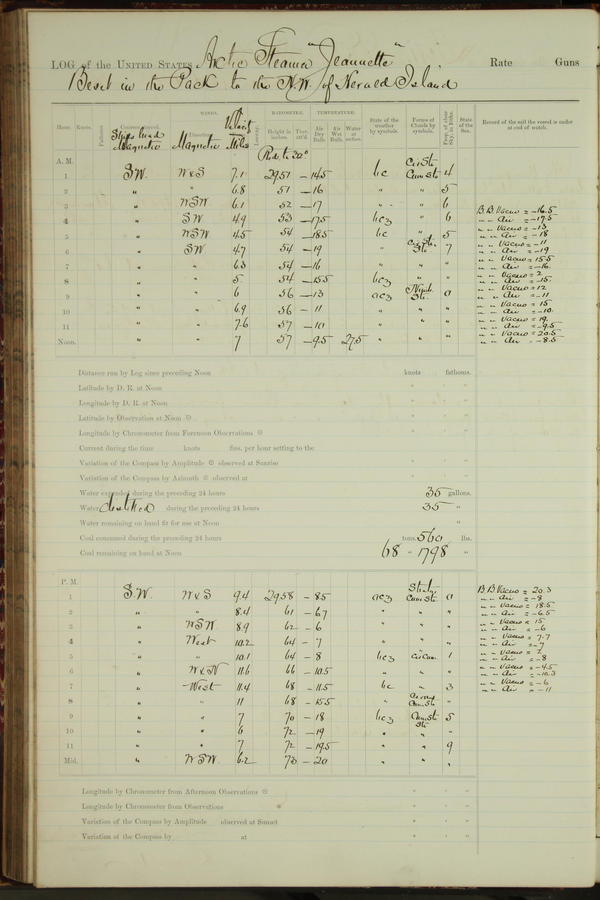 LOG of the UNITED STATES Arctic Steamer "Jeannette" Rate Guns
Beset in the Pack to the N.W. of Herald Island
Hour. Knots. Fathoms. Ships head Magnetic WINDS. Magnetic Velocity Miles Leeway. BAROMETER. Height in inches. Ther. att'd. TEMPERATURE. Air Dry Bulb. Air Wet Bulb. Water at surface. State of the weather by symbols. Forms of Clouds by symbols. Prop. of clear Sky, in 10ths. State of the Sea. Record of the sail the vessel is under at end of watch.
A. M. Red. to 32° Cir Str
1 S.W. W & S 7.1 29.51 -14.5 bc Cum Str 4
2 " " 6.8 51 -16 " " 5
3 " WSW 6.1 52 -17 " " 6 B. B. Vacuo = -16.5
4 " S.W. 4.9 53 -17.5 bcz " 6 " " Air = -17.5
5 " WSW 4.5 54 -18.5 bc " 5 " " Vacuo = -13
" " Air = -18
6 " S.W. 4.7 54 -19 " Str 7 " " Vacuo = -11
" " Air = -19
7 " " 6.3 54 -16 " " " " " Vacuo = 15.5
" " Air = -16
8 " " 5 54 -15.5 bcz " " " " Vacuo = 2
" " Air = -15
9 " " 6 56 -13 Str. 0 " " Vacuo = 12
" " Air = -11
10 " " 6.9 56 -11 " " " " " Vacuo = 15
" " Air = -10
11 " " 7.6 57 -10 " " " " " Vacuo = 19
" " Air = -9.5
Noon. " " 7 57 -9.5 27.5 " " " " " Vacuo = 20.5
" " Air = -8.5
Distance run by Log since preceding Noon knots fathoms.
Latitude by D. R. at Noon
Longitude by D. R. at Noon
Latitude by Observation at Noon
Longitude by Chronometer from Forenoon Observations
Current during the time knots fms. per hour setting to the
Variation of the Compass by Amplitude observed at Sunrise
Variation of the Compass by Azimuth observed at
Water expended during the preceding 24 hours 35 gallons.
Water distilled during the preceding 24 hours 35 "
Water remaining on hand fit for use at Noon "
Coal consumed during the preceding 24 hours tons. 560 lbs.
Coal remaining on hand at Noon 68 " 1798 "
P. M.
1 S.W. W & S 9.4 29.58 -8.5 Cum Str. 0 B. B. Vacuo = 20.3
" " Air = -8
2 " " 8.4 61 -6.7 " " " " " Vacuo = 18.5
" " Air = -6.5
3 " WSW 8.9 62 -6 " " " " " Vacuo = 15
" " Air = -6
4 " West 10.2 64 -7 " " " " " Vacuo = 7.7
" " Air = -7
5 " " 10.1 64 -8 bcz Cir Cum. 1 " " Vacuo = 2
" " Air = -8
6 " W & N 11.6 66 -10.5 " " " " " Vacuo = -4.5
" " Air = -10.3
7 " West 11.4 68 -11.5 bc " 3 " " Vacuo = -6
" " Air = -11
8 " " 11 68 -15.5 " Cum. Str "
9 " " 7 70 -18 bcz Cum. Str 5
10 " " 6 72 -19 " " "
11 " " 7 72 -19.5 " " 9
Mid. " WSW 6.2 73 -20 " " "
Longitude by Chronometer from Afternoon Observations
Longitude by Chronometer from Observations
Variation of the Compass by Amplitude observed at Sunset
Variation of the Compass by at